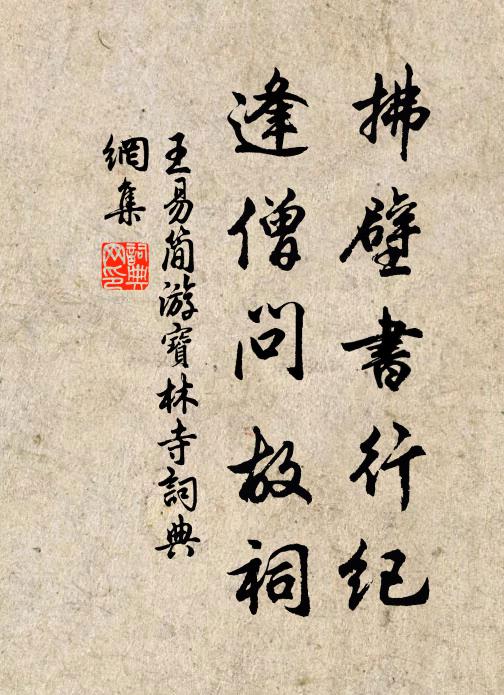 拂壁書行紀
逢僧問故祠
王易简游寶林寺詞典
網集
詞典网印